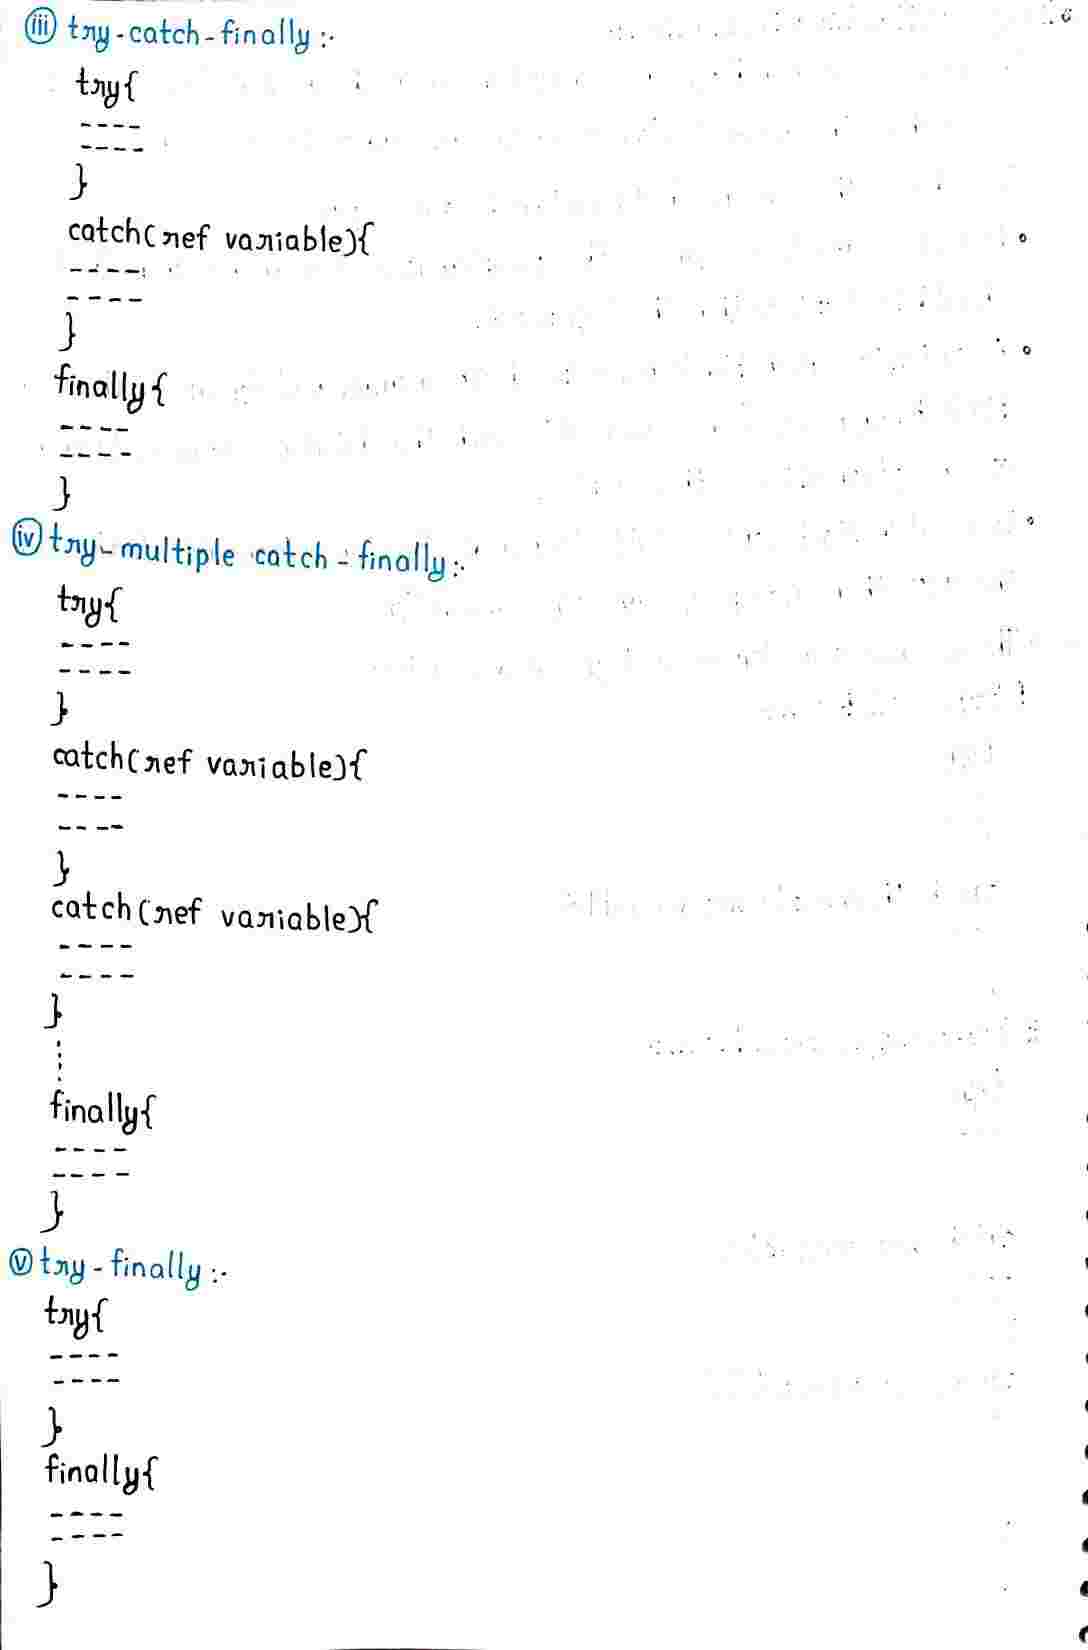 (iii) try-catch-finally :-
try{
----
----
}
catch(ref variable){
----
----
}
finally{
----
----
}
(iv) try-multiple catch-finally :-
try{
----
----
}
catch(ref variable){
----
----
}
catch(ref variable){
----
----
}
⋮
finally{
----
----
}
(v) try-finally :-
try{
----
----
}
finally{
----
----
}